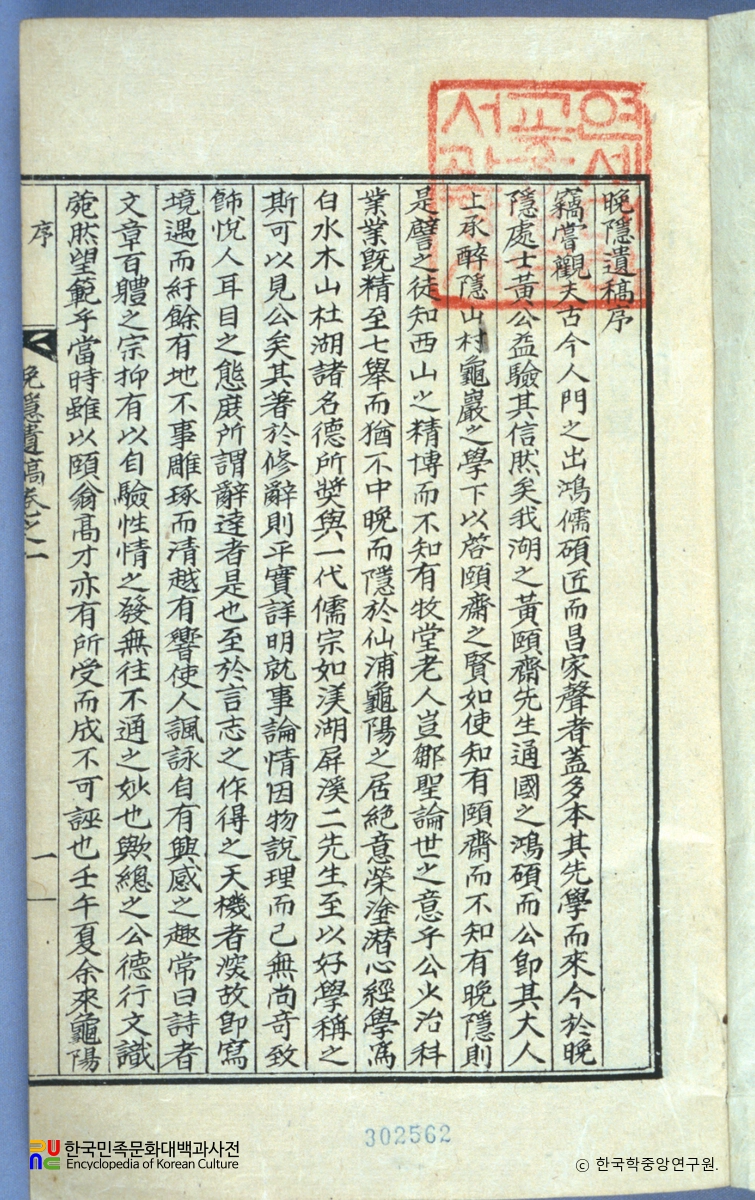 晚隱遺稿序
竊嘗觀夫古今人門之出鴻儒碩匠而昌家聲者蓋多本其先學而來今於晚
隱處士黃公益驗其信然矣我湖之黃頤齋先生通國之鴻碩而公卽其大人
上承醉隱山村龜巖之學下以啓頤齋之賢如使知有頤齋而不知有晚隱則
是譬之徒知西山之精博而不知有牧堂老人豈鄒聖論世之意乎公少治科
業業旣精至七擧而猶不中晚而隱於仙浦龜陽之居絶意榮塗潜心經學爲
白水木山杜湖諸名德所奬與一代儒宗如渼湖屛溪二先生至以好學稱之
斯可以見公矣其著於修辭則平實詳明就事論情因物說理而已無尙奇致
飾悅人耳目之態庭所謂辭達者是也至於言志之作得之天機者深故卽寫
境遇而紆餘有地不事雕琢而淸越有響使人諷詠自有興感之趣常曰詩者
文章百軆之宗抑有以自驗性情之發無往不通之妙也歟總之公德行文識
菀然望範乎當時雖以頤翁高才亦有所受而成不可誣也壬午夏余來龜陽
序
晚隱遺稿卷之一
一
연세
교
서
302562
한국민족문화대백과사전
Encyclopedia of Korean Culture
© 한국학중앙연구원.